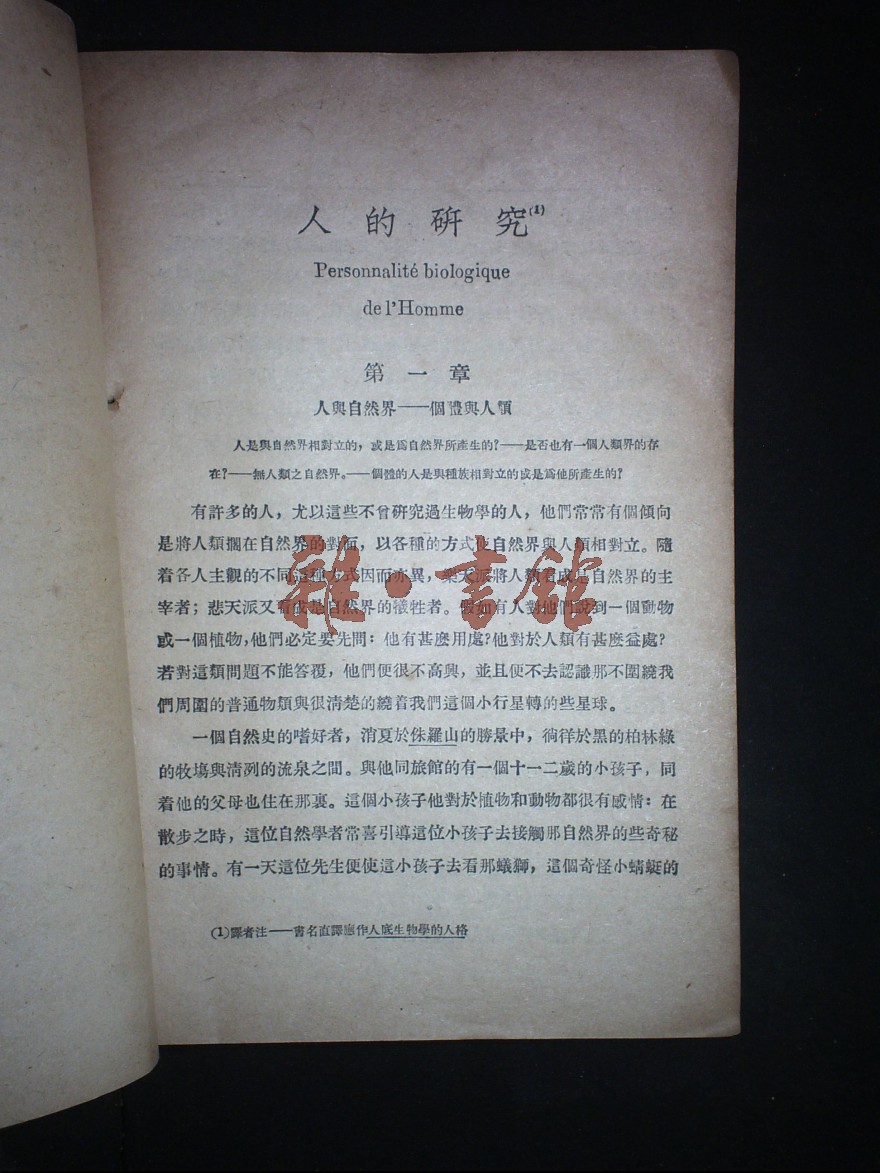 人的硏究(1)
Personnalité biologique
de l'Homme
第一章
人與自然界——個體與人類
人是與自然界相對立的，或是爲自然界所產生的？——是否也有一個人類界的存
在？——無人類之自然界。——個體的人是與種族相對立的或是爲他所產生的？
有許多的人，尤以這些不曾硏究過生物學的人，他們常常有個傾向
是將人類擱在自然界的對面，以各種的方式使自然界與人類相對立。隨
着各人主觀的不同這種方式因而亦異，樂天派將人類看成是自然界的主
宰者；悲天派又看成是自然界的犧牲者。假如有人對他們說到一個動物
或一個植物，他們必定要先問：他有甚麽用處？他對於人類有甚麽益處？
若對這類問題不能答覆，他們便很不高興，並且便不去認識那不圍繞我
們周圍的普通物類與很淸楚的繞着我們這個小行星轉的些星球。
一個自然史的嗜好者，消夏於侏羅山的勝景中，徜徉於黑的柏林綠
的牧場與淸洌的流泉之間。與他同旅館的有一個十一二歲的小孩子，同
着他的父母也住在那裏。這個小孩子他對於植物和動物都很有感情：在
散步之時，這位自然學者常喜引導這位小孩子去接觸那自然界的些奇秘
的事情。有一天這位先生便使這小孩子去看那蟻獅，這個奇怪小蜻蜓的
(1)譯者注——書名直譯應作人底生物學的人格
雜·書館